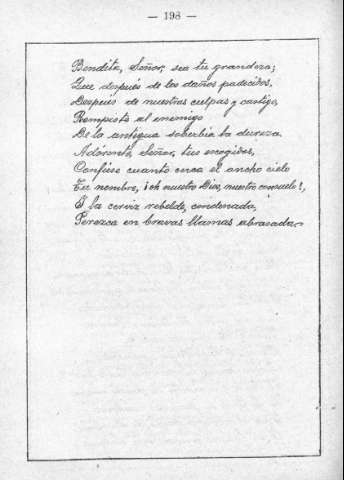 — 198 —
Bendita, Señor, sea tu grandeza;
Que después de los daños padecidos,
Después de nuestras culpas y castigo,
Rompiste al enemigo
De la antigua soberbia la dureza.
Adórente, Señor, tus escogidos,
Confiese cuanto cerca el ancho cielo
Tu nombre, ¡oh nuestro Dios, nuestro consuelo!,
I la cerviz rebelde, condenada,
Perezca en bravas llamas abrasada.